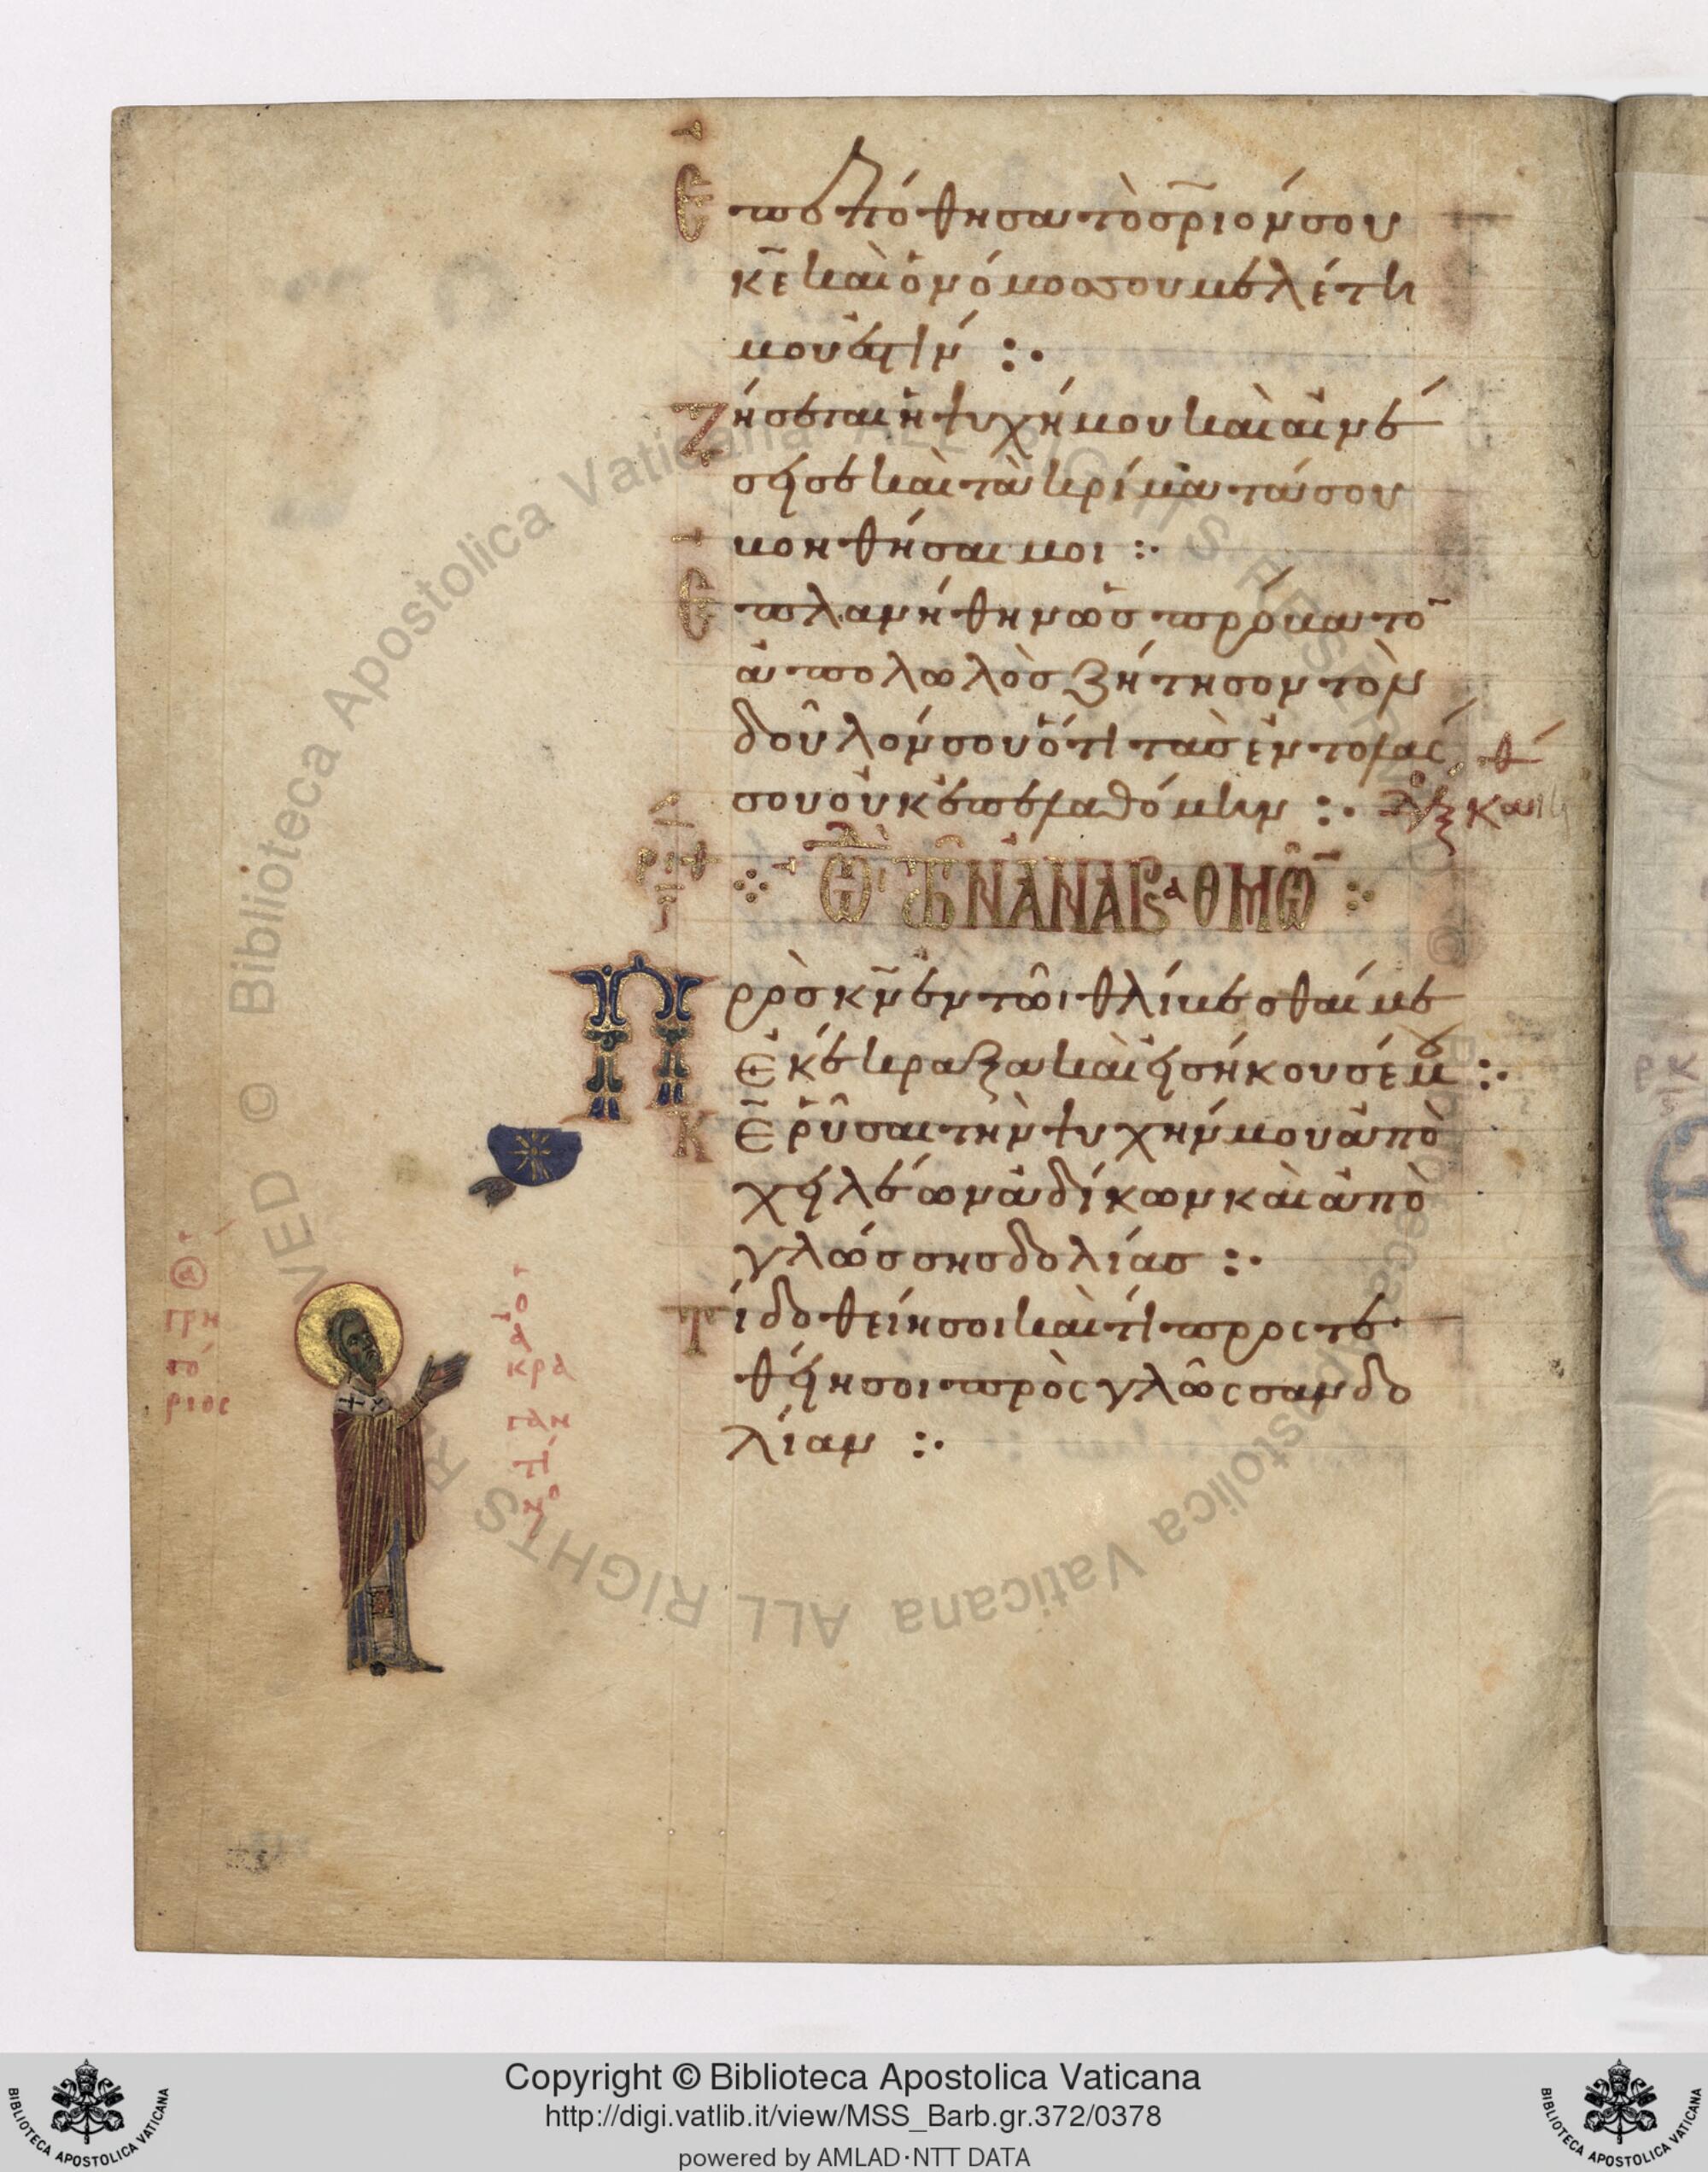 Ἐπεπόθησα τὸ σ̅ρ̅ιόν σου
κ̅ε̅ καὶ ὁ νόμος σου μελέτη
μου ἐστίν :·
Ζήσεται ἡ ψυχή μου καὶ αἰνέ
σει σε καὶ τὰ κρίματά σου
βοηθήσαι μοι :·
Ἐπλανήθην ὡς πρόβατο̅
ἀπολωλὸς ζήτησον τὸν
δοῦλόν σου ὅτι τὰς ἐντολάς
σου οὐκ ἐπελαθόμην :·
ριθ
ΩΔῊ ΤΩ͂Ν ἈΝΑΒΑΘΜΩ͂
Πρὸς κ̅ν̅ ἐν τῶι θλίβεσθαί με
ἐκέκραξα καὶ εἰσήκουσέ μου :·
Κ̅Ε̅ ῥῦσαι τὴν ψυχήν μου ἀπὸ
χειλέων ἀδίκων καὶ ἀπὸ
γλώσσης δολίας :·
Τί δοθείη σοι καὶ τί προστε
θείη σοι πρὸς γλῶσσαν δο
λίαν :·
γρη
γό
ριος
κρα
γαν
Copyright © Biblioteca Apostolica Vaticana
http://digi.vatlib.it/view/MSS_Barb.gr.372/0378
powered by AMLAD·NTT DATA
BIBLIOTECA APOSTOLICA VATICANA
BIBLIOTECA APOSTOLICA VATICANA
© Biblioteca Apostolica Vaticana ALL RIGHTS RESERVED © Biblioteca Apostolica Vaticana ALL RIGHTS RESERVED